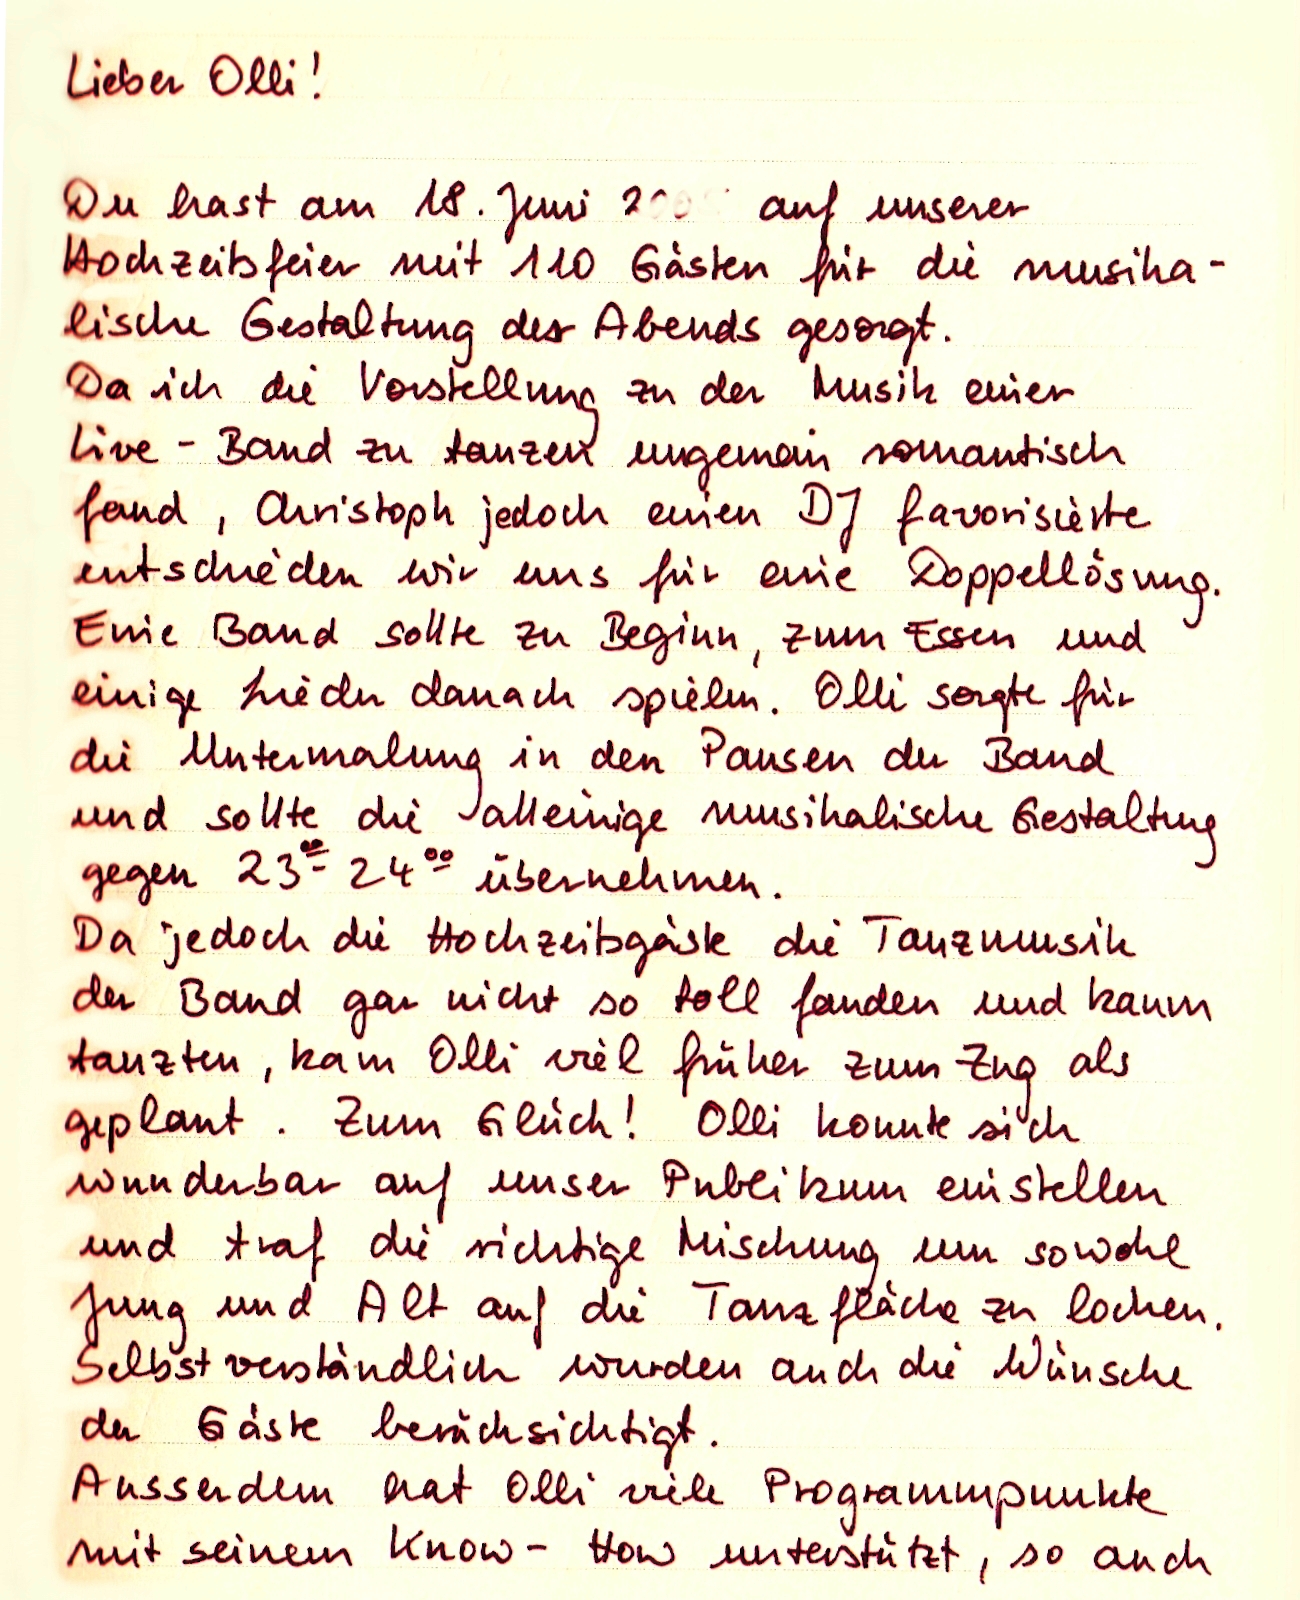 Lieber Olli!
Du hast am 18. Juni auf unserer
Hochzeitsfeier mit 110 Gästen für die musika-
lische Gestaltung des Abends gesorgt.
Da ich die Vorstellung zu der Musik einer
Live-Band zu tanzen ungemein romantisch
fand, Christoph jedoch einen DJ favorisierte
entschieden wir uns für eine Doppellösung.
Eine Band sollte zu Beginn, zum Essen und
einige Lieder danach spielen. Olli sorgte für
die Untermalung in den Pausen der Band
und sollte die alleinige musikalische Gestaltung
gegen 23⁰⁰ 24⁰⁰ übernehmen.
Da jedoch die Hochzeitsgäste die Tanzmusik
der Band gar nicht so toll fanden und kaum
tanzten, kam Olli viel früher zum Zug als
geplant. Zum Glück! Olli konnte sich
wunderbar auf unser Publikum einstellen
und traf die richtige Mischung um sowohl
Jung und Alt auf die Tanzfläche zu locken.
Selbstverständlich wurden auch die Wünsche
der Gäste berücksichtigt.
Ausserdem hat Olli viele Programmpunkte
mit seinem Know-How unterstützt, so auch